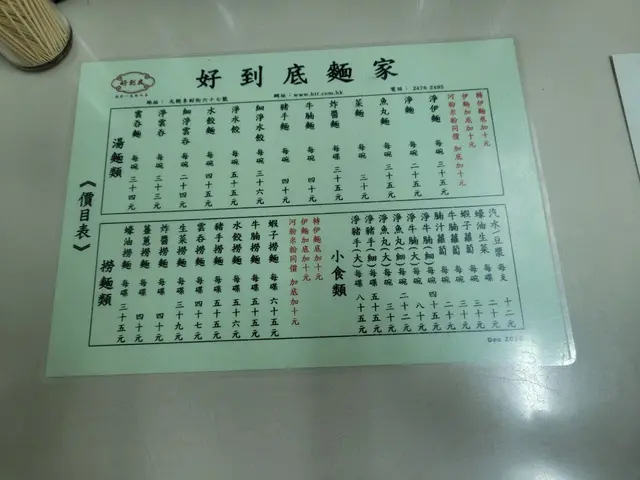 好到底麵家
好到底
地址：元朗阜財街六十七號
網址：www.htr.com.hk
電話：2476 2495
《價目表》
湯麵類
雲吞麵 每碗 三十四元
淨雲吞 每碗 三十三元
細淨雲吞 每碗 二十四元
水餃麵 每碗
淨水餃 每碗
細淨水餃 每碗 三十六元
豬手麵 每碗 四十元
牛腩麵 每碗 四十元
炸醬麵 每碟 三十五元
菜麵 每碗 三十元
魚丸麵 每碗 三十五元
淨麵 每碗 二十五元
淨伊麵 每碗 三十五元
河粉米粉同價 加底加十元
伊麵加底加十元
特伊麵底加十元
撈麵類
蠔油撈麵 每碟 三十五元
薑蔥撈麵 每碟 四十元
炸醬撈麵 每碟 四十元
生菜撈麵 每碟 三十九元
雲吞撈麵 每碟 四十七元
豬手撈麵 每碟 五十五元
水餃撈麵 每碟 五十六元
牛腩撈麵 每碟 五十五元
蝦子撈麵 每碟 六十五元
河粉米粉同價 加底加十元
伊麵加底加十元
特伊麵底加十元
小食類
淨豬手(大) 每碟 八十五元
淨豬手(細) 每碟
淨魚丸(大) 每碗 三十五元
淨魚丸(細) 每碗 二十二元
淨牛腩(大) 每碗
淨牛腩(細) 每碗 四十五元
腩汁蘿蔔 每碗 二十元
牛腩蘿蔔
蝦子蘿蔔 每碟 三十元
蠔油生菜 每碟 二十元
汽水/豆漿 每支 十二元
Dec 2020